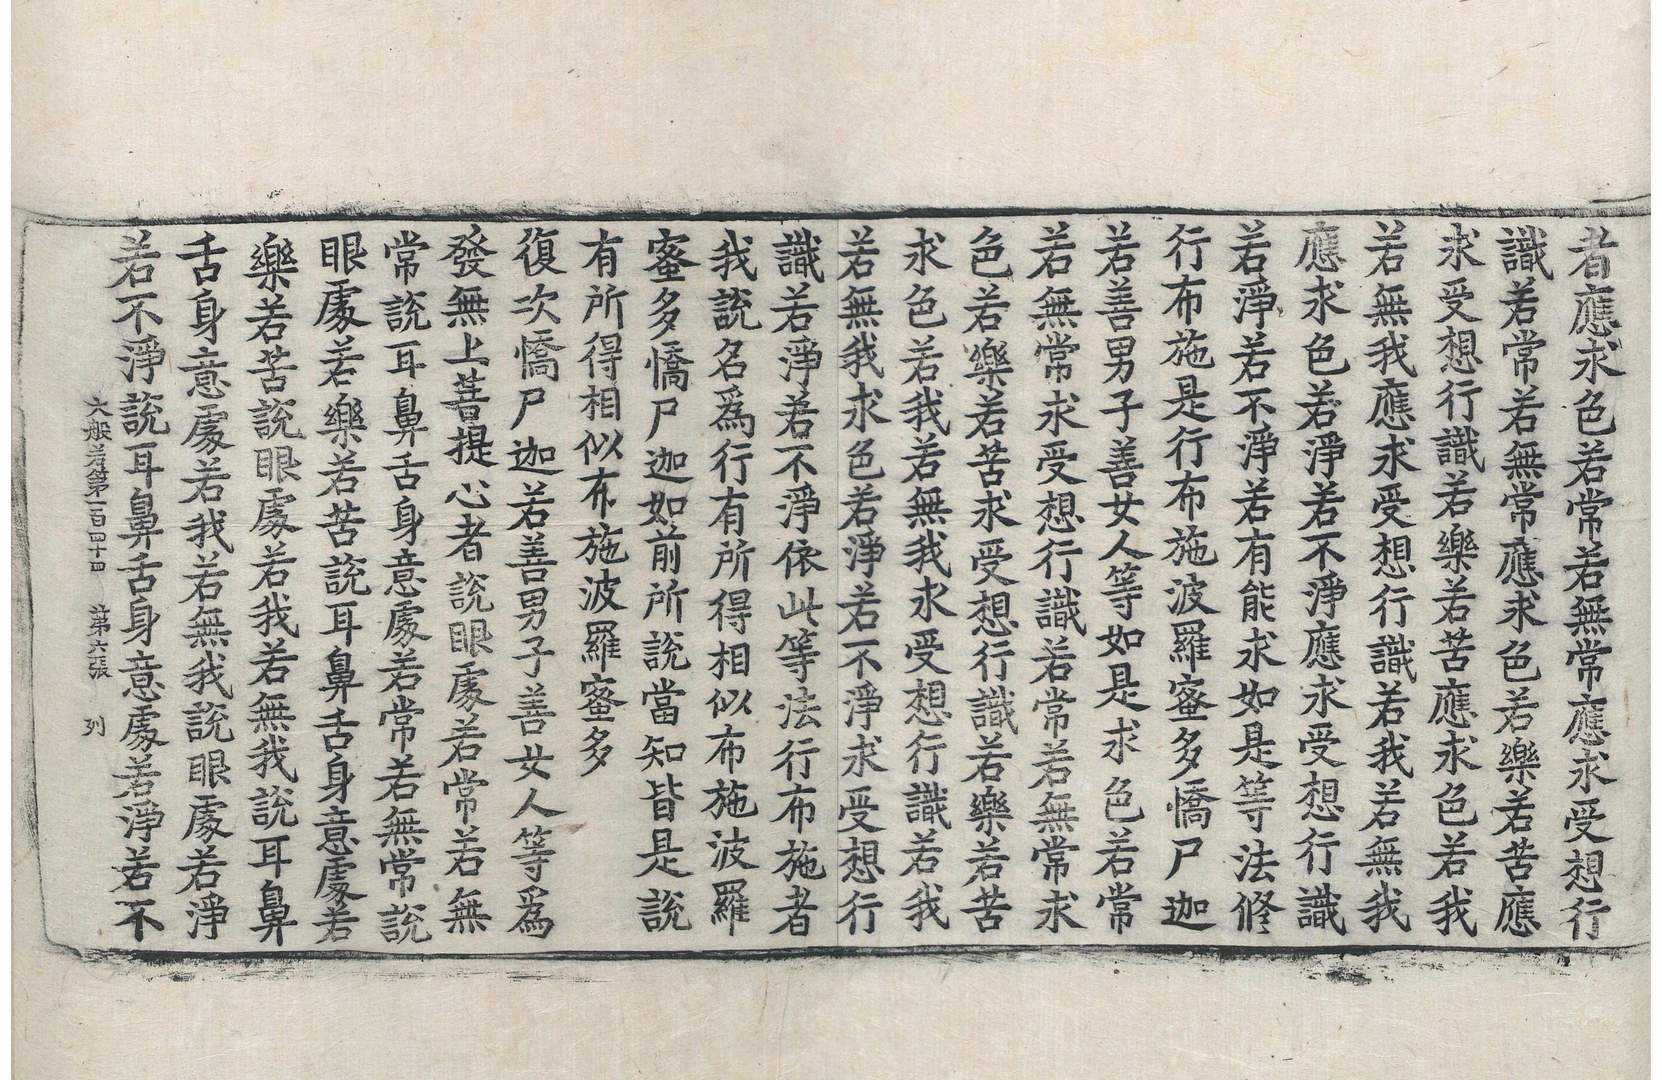 者應求色若常若無常應求受想行
識若常若無常應求色若樂若苦應
求受想行識若樂若苦應求色若我
若無我應求受想行識若我若無我
應求色若淨若不淨應求受想行識
若淨若不淨若有能求如是等法修
行布施是行布施波羅蜜多憍尸迦
若善男子善女人等如是求色若常
若無常求受想行識若常若無常求
色若樂若苦求受想行識若樂若苦
求色若我若無我求受想行識若我
若無我求色若淨若不淨求受想行
識若淨若不淨依此等法行布施者
我說名爲行有所得相似布施波羅
蜜多憍尸迦如前所說當知皆是說
有所得相似布施波羅蜜多
復次憍尸迦若善男子善女人等爲
發無上菩提心者說眼處若常若無
常說耳鼻舌身意處若常若無常說
眼處若樂若苦說耳鼻舌身意處若
樂若苦說眼處若我若無我說耳鼻
舌身意處若我若無我說眼處若淨
若不淨說耳鼻舌身意處若淨若不
大般若第一百四十四 第六張 列